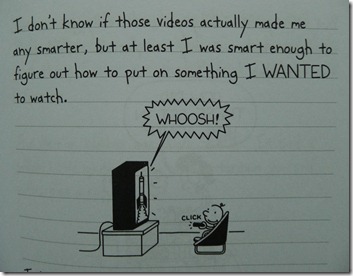 I don't know if those videos actually made me
any smarter, but at least I was smart enough to
figure out how to put on something I WANTED
to watch.
WHOOSH!
CLICK